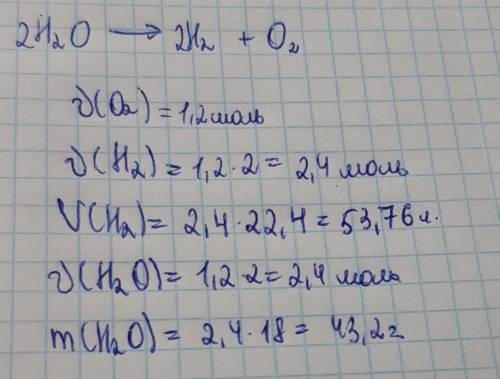 2H₂O ⟶ 2H₂ + O₂
ν(O₂) = 1,2 моль
ν(H₂) = 1,2 · 2 = 2,4 моль
V(H₂) = 2,4 · 22,4 = 53,76 л.
ν(H₂O) = 1,2 · 2 = 2,4 моль
m(H₂O) = 2,4 · 18 = 43,2 г